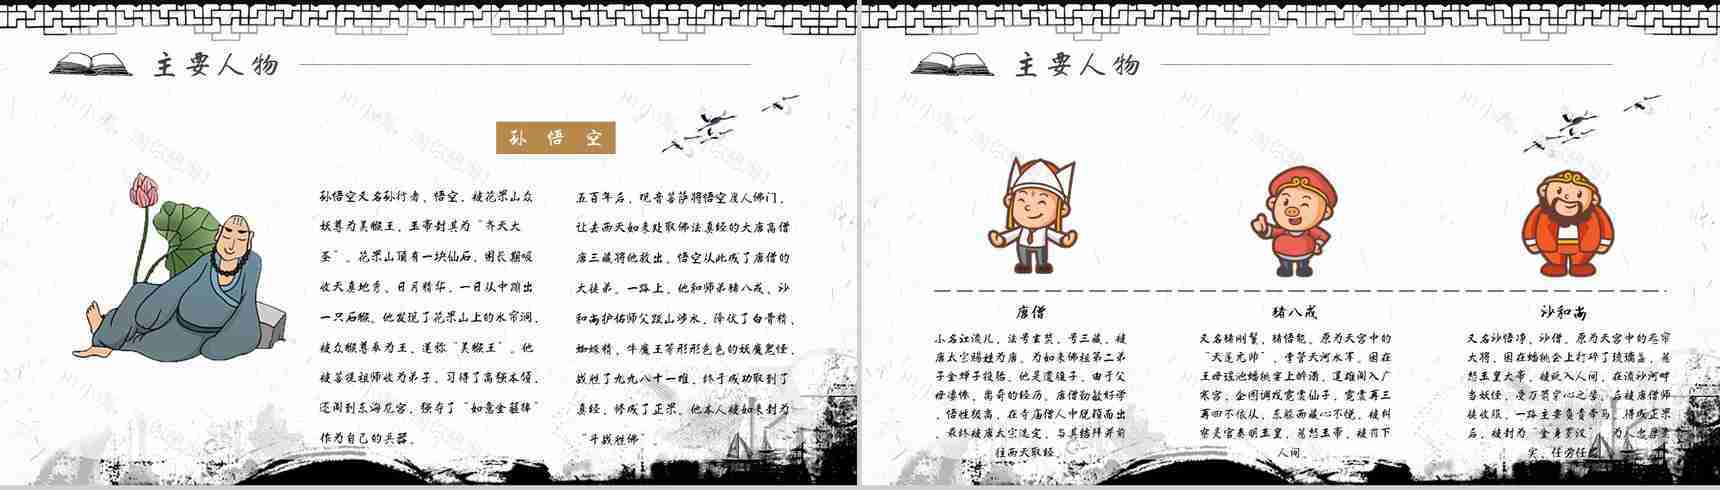 主要人物
孙悟空
孙悟空又名孙行者、悟空，被花果山众
妖尊为美猴王，玉帝封其为“齐天大
圣”。花果山顶有一块仙石，因长期吸
收天真地秀，日月精华，一日从中蹦出
一只石猴。他发现了花果山上的水帘洞，
被众猴尊奉为王，遂称“美猴王”。他
被菩提祖师收为弟子，习得了高强本领，
还闹到东海龙宫，强夺了“如意金箍棒”
作为自己的兵器。
五百年后，观音菩萨将悟空度入佛门，
让去西天如来处取佛法真经的大唐高僧
唐三藏将他救出，悟空从此成了唐僧的
大徒弟。一路上，他和师弟猪八戒、沙
和尚护佑师父跋山涉水，降伏了白骨精、
蜘蛛精、牛魔王等形形色色的妖魔鬼怪，
战胜了九九八十一难，终于成功取到了
真经，修成了正果。他本人被如来封为
“斗战胜佛”。
主要人物
唐僧
小名江流儿，法号玄奘，号三藏，被
唐太宗赐姓为唐。为如来佛祖第二弟
子金蝉子投胎。他是遗腹子，由于父
母凄惨、离奇的经历，唐僧勤敏好学
，悟性极高，在寺庙僧人中脱颖而出
。最终被唐太宗选定，与其结拜并前
往西天取经。
猪八戒
又名猪刚鬣、猪悟能。原为天宫中的
“天蓬元帅”，掌管天河水军。因在
王母瑶池蟠桃宴上醉酒，逞雄闯入广
寒宫，企图调戏霓裳仙子，霓裳再三
再四不依从，东躲西藏心不悦。被纠
察灵官奏明玉皇，惹怒玉帝，被罚下
人间。
沙和尚
又名沙悟净、沙僧。原为天宫中的卷帘
大将，因在蟠桃会上打碎了琉璃盏，惹
怒玉皇大帝，被贬入人间，在流沙河畔
当妖怪，受万箭穿心之苦。后被唐僧师
徒收服，一路主要负责牵马，得成正果
后，被封为“金身罗汉”